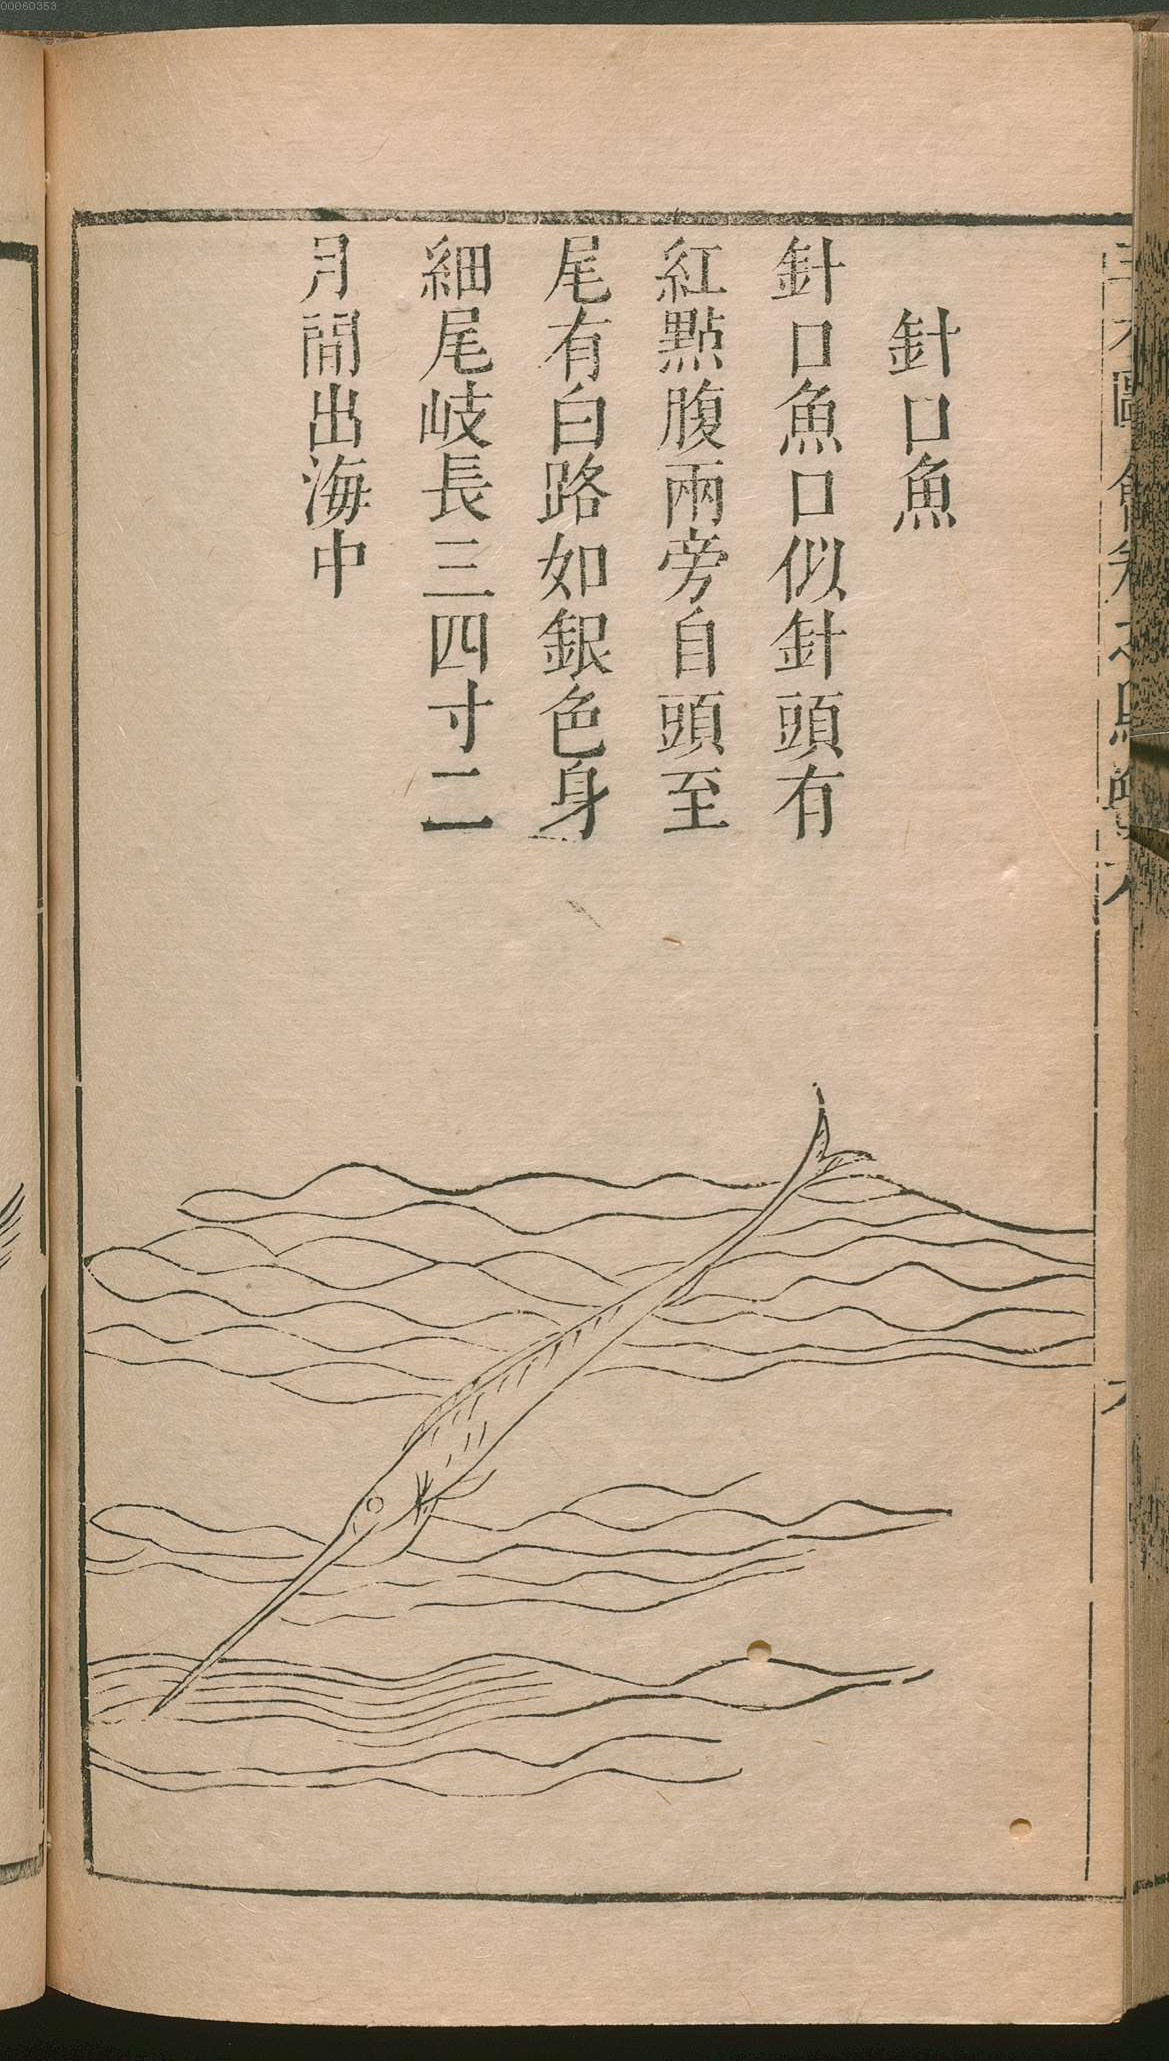 00060353
針口魚
針口魚口似針頭有
紅點腹兩旁自頭至
尾有白路如銀色身
細尾岐長三四寸二
月間出海中